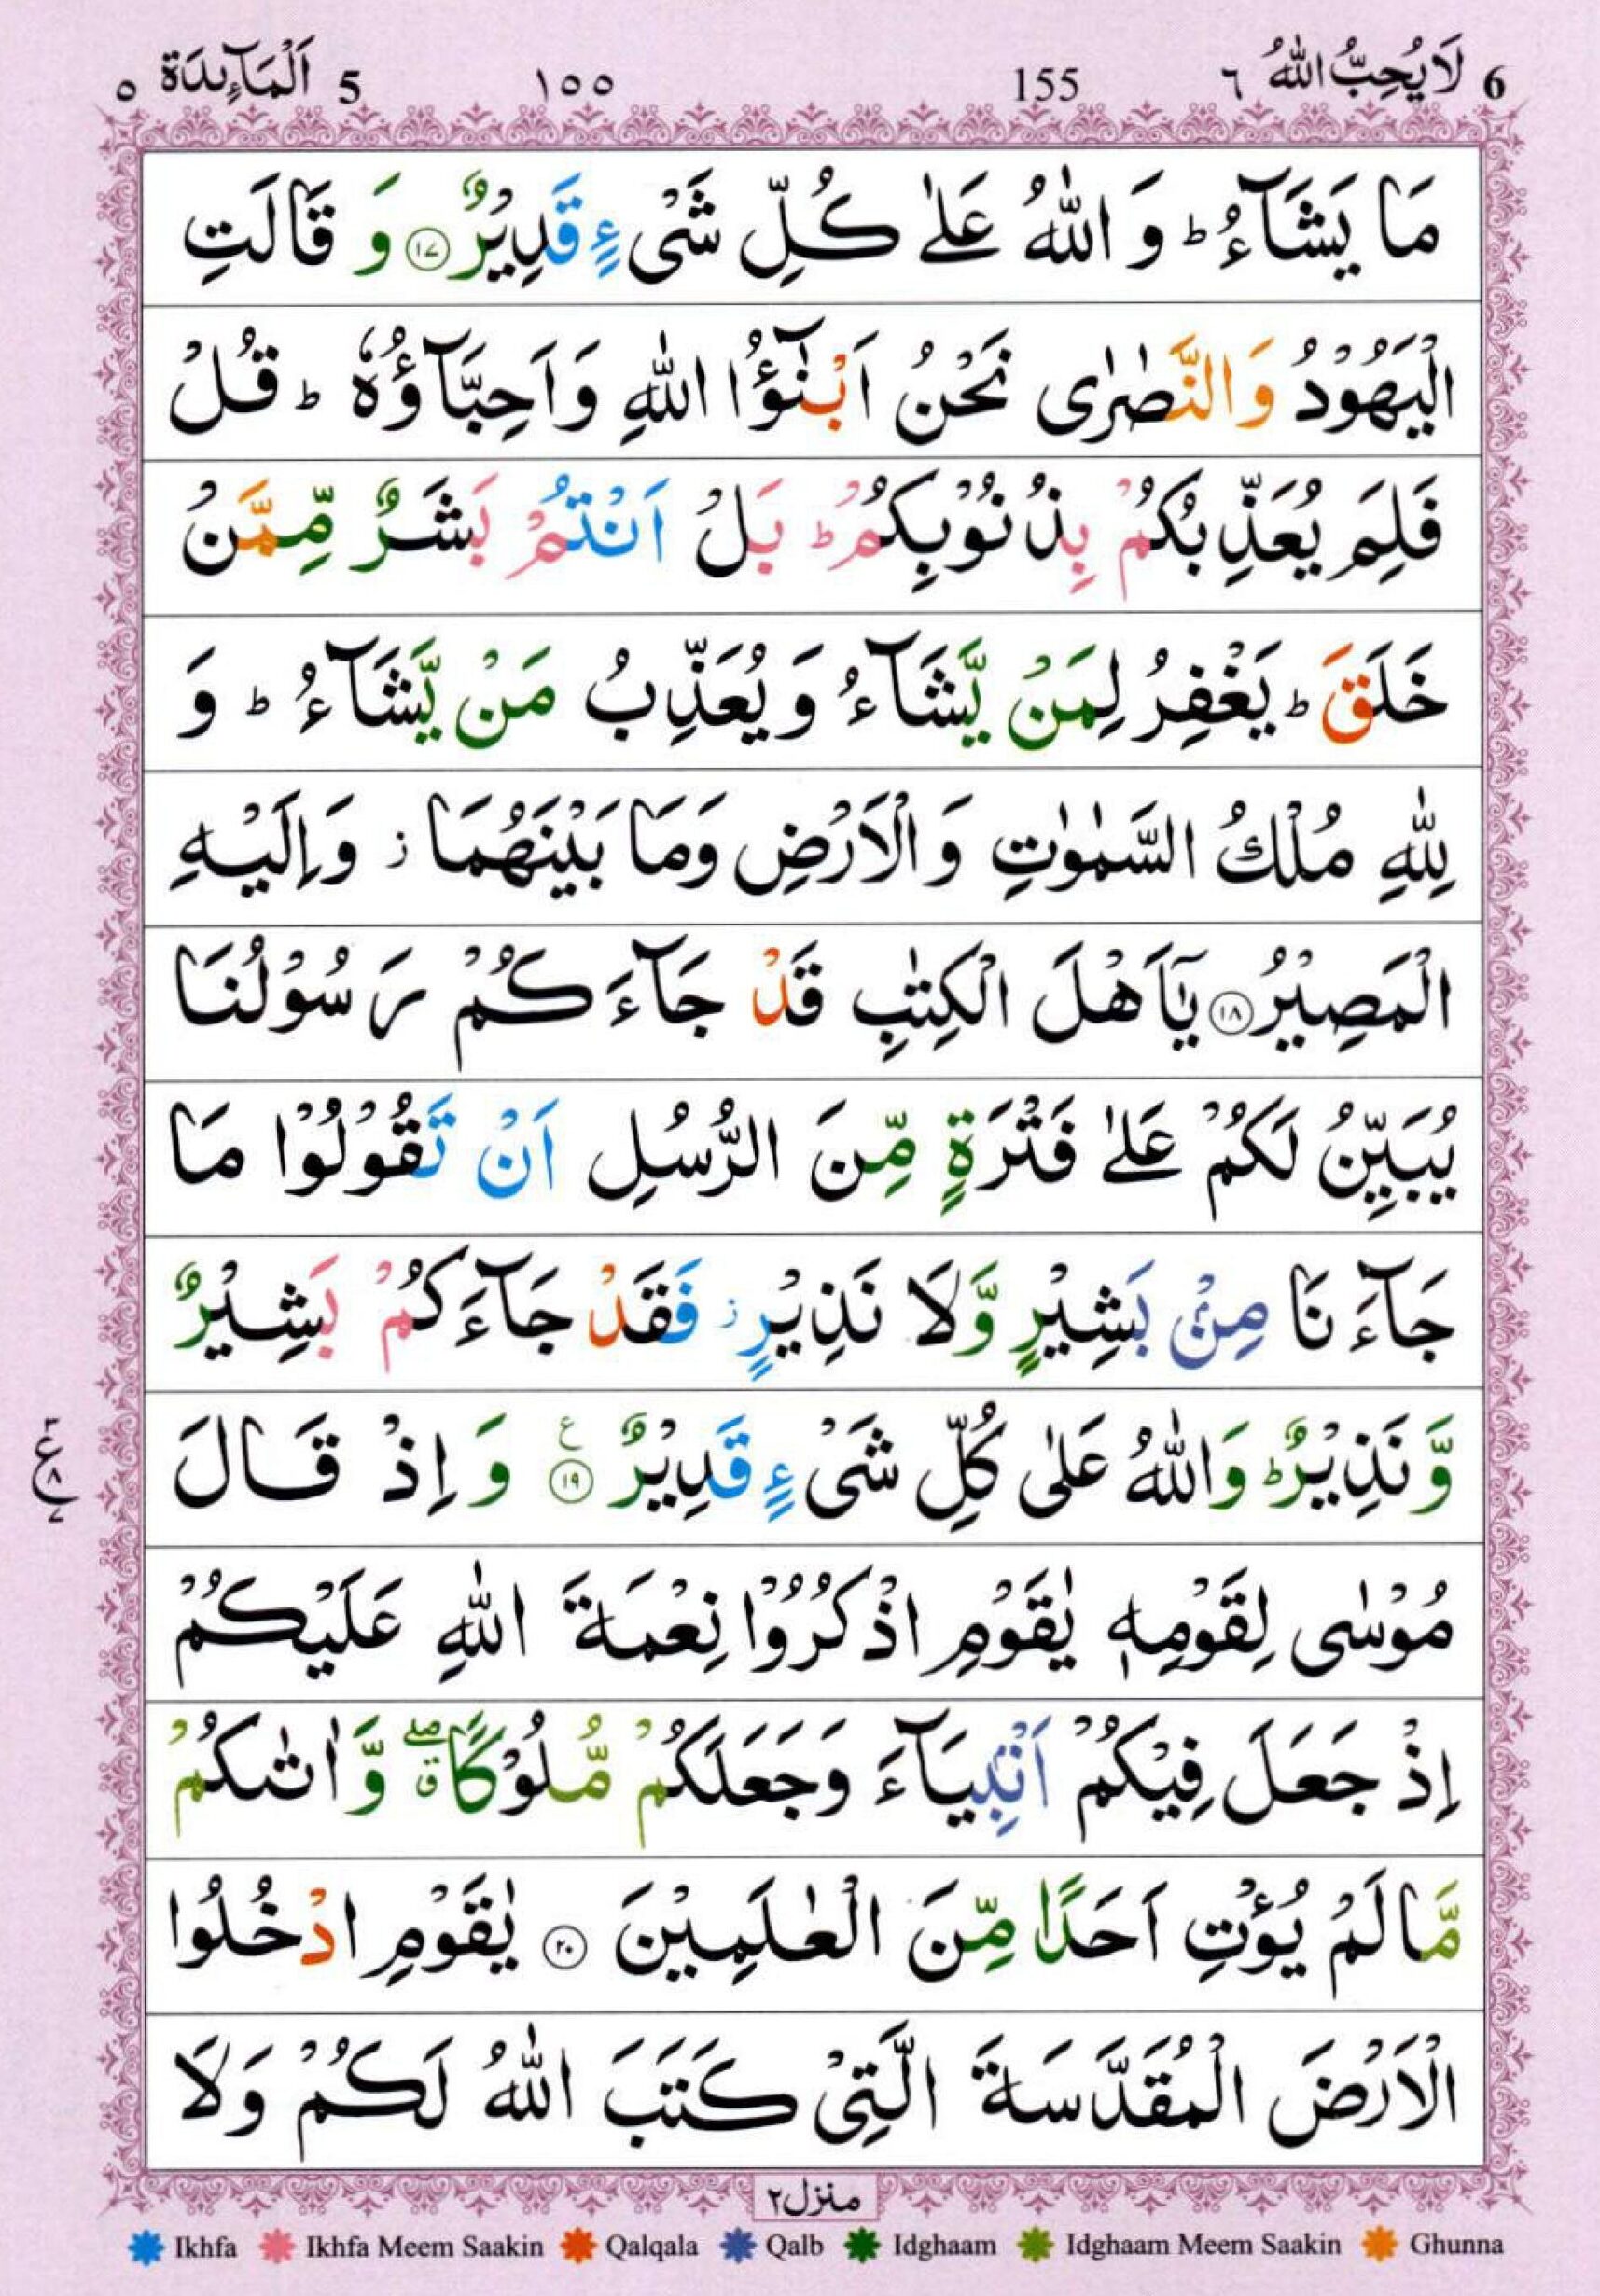 6 لَا یُحِبُّ اللهُ ٦ 155 ١٥٥ 5 اَلْمَآئِدَة ٥
مَا یَشَآءُ ؕ وَ اللّٰهُ عَلٰی كُلِّ شَیْءٍ قَدِیْرٌ ﴿۱۷﴾ وَ قَالَتِ
الْیَهُوْدُ وَالنَّصٰرٰی نَحْنُ اَبْنٰٓؤُا اللّٰهِ وَاَحِبَّآؤُهٗ ؕ قُلْ
فَلِمَ یُعَذِّبُكُمْ بِذُنُوْبِكُمْ ؕ بَلْ اَنْتُمْ بَشَرٌ مِّمَّنْ
خَلَقَ ؕ یَغْفِرُ لِمَنْ یَّشَآءُ وَ یُعَذِّبُ مَنْ یَّشَآءُ ؕ وَ
لِلّٰهِ مُلْكُ السَّمٰوٰتِ وَ الْاَرْضِ وَمَا بَیْنَهُمَا ؗ وَاِلَیْهِ
الْمَصِیْرُ ﴿۱۸﴾ یٰۤاَهْلَ الْكِتٰبِ قَدْ جَآءَكُمْ رَسُوْلُنَا
یُبَیِّنُ لَكُمْ عَلٰی فَتْرَةٍ مِّنَ الرُّسُلِ اَنْ تَقُوْلُوْا مَا
جَآءَنَا مِنْۢ بَشِیْرٍ وَّلَا نَذِیْرٍ ؗ فَقَدْ جَآءَكُمْ بَشِیْرٌ
وَّ نَذِیْرٌ ؕ وَاللّٰهُ عَلٰی كُلِّ شَیْءٍ قَدِیْرٌ ﴿۱۹﴾ ع وَ اِذْ قَالَ
ع ٣ ٨ ٧
مُوْسٰی لِقَوْمِهٖ یٰقَوْمِ اذْكُرُوْا نِعْمَةَ اللّٰهِ عَلَیْكُمْ
اِذْ جَعَلَ فِیْكُمْ اَنْۢبِیَآءَ وَجَعَلَكُمْ مُّلُوْكًا ۗۖ وَّ اٰتٰىكُمْ
مَّا لَمْ یُؤْتِ اَحَدًا مِّنَ الْعٰلَمِیْنَ ﴿۲۰﴾ یٰقَوْمِ ادْخُلُوا
الْاَرْضَ الْمُقَدَّسَةَ الَّتِیْ كَتَبَ اللّٰهُ لَكُمْ وَلَا
منزل ٢
Ikhfa Ikhfa Meem Saakin Qalqala Qalb Idghaam Idghaam Meem Saakin Ghunna